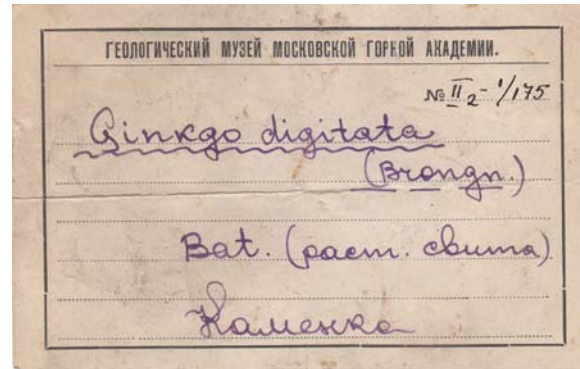 ГЕОЛОГИЧЕСКИЙ МУЗЕЙ МОСКОВСКОЙ ГОРНОЙ АКАДЕМИИ.
№ II2-1/175
Ginkgo digitata
(Brongn.)
Bat. (раст. свита)
Каменка